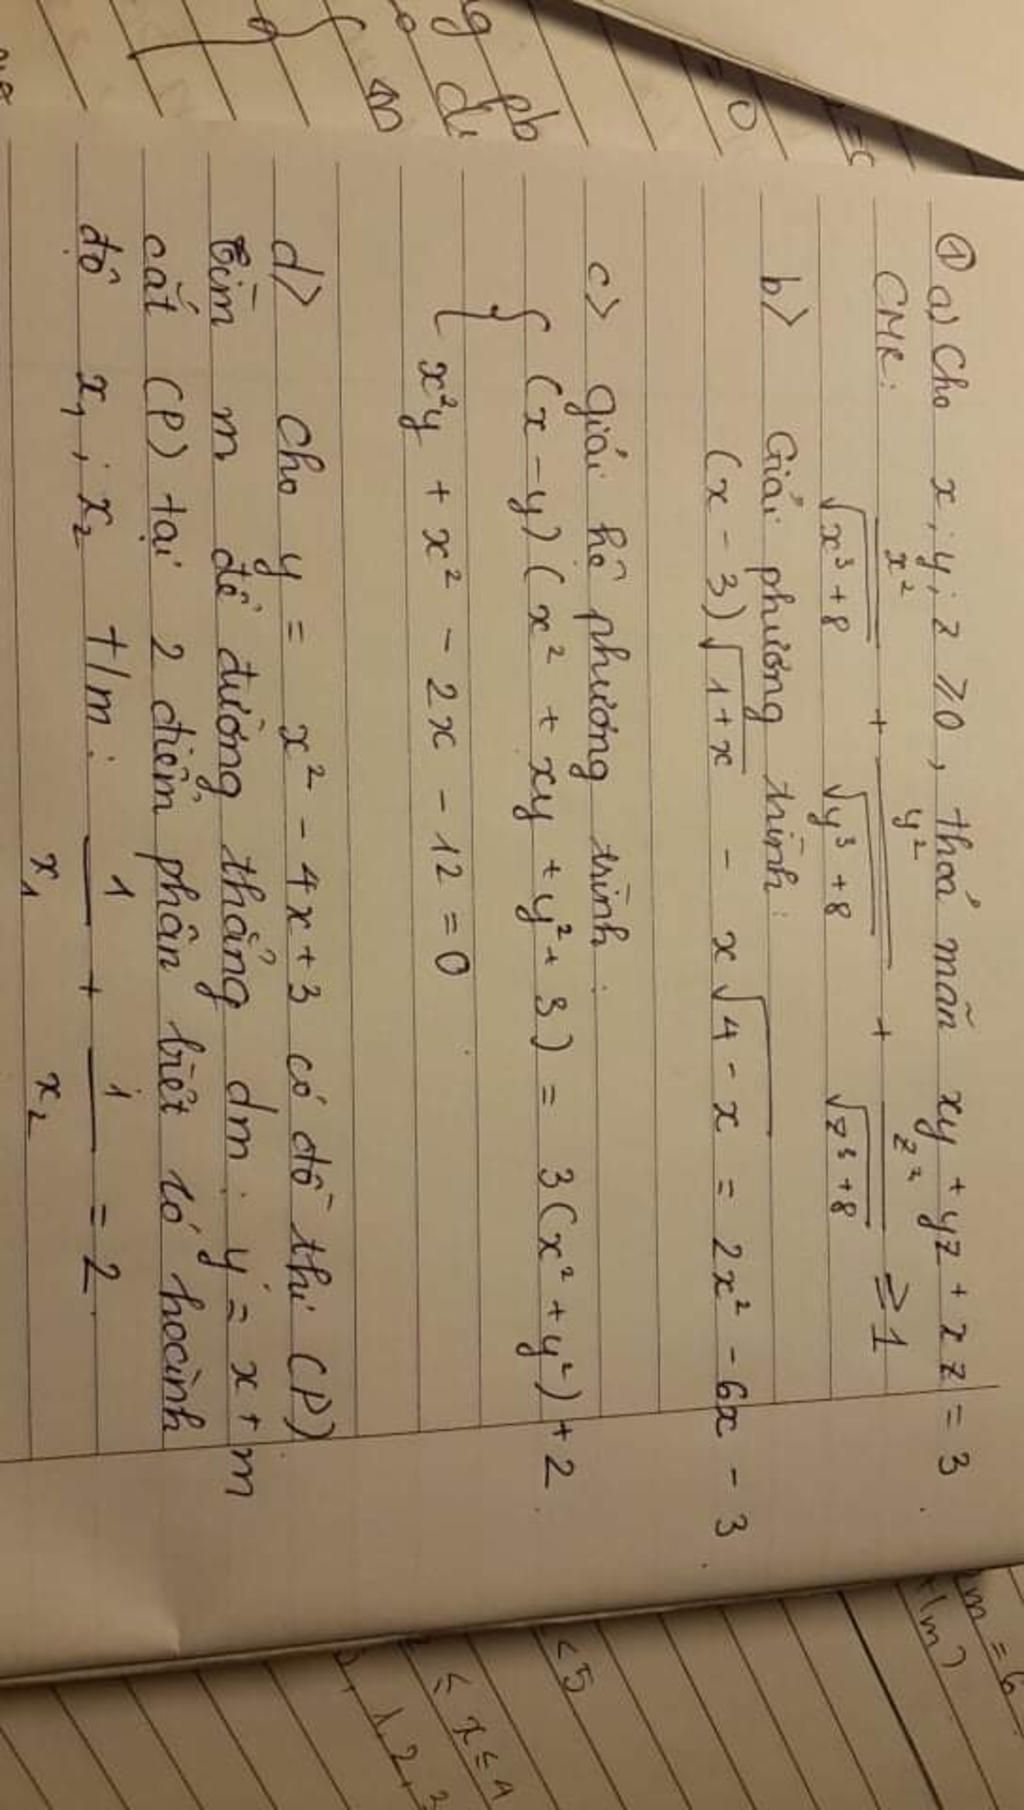 ① a) Cho x; y; z ≥ 0, thoả mãn xy + yz + xz = 3.
CMR: x²/√(x³+8) + y²/√(y³+8) + z²/√(z³+8) ≥ 1
b> Giải phương trình:
(x - 3)√(1+x) - x√(4-x) = 2x² - 6x - 3.
c> giải hệ phương trình:
{ (x-y)(x² + xy + y² + 3) = 3(x² + y²) + 2.
x²y + x² - 2x - 12 = 0
d> cho y = x² - 4x + 3 có đồ thị (P).
tìm m để đường thẳng dm: y = x + m
cắt (P) tại 2 điểm phân biệt có hoành
độ x₁; x₂ t/m: 1/x₁ + 1/x₂ = 2.
g pb
= 0
m = 6
t/m)
< 5
≤ x ≤ 4